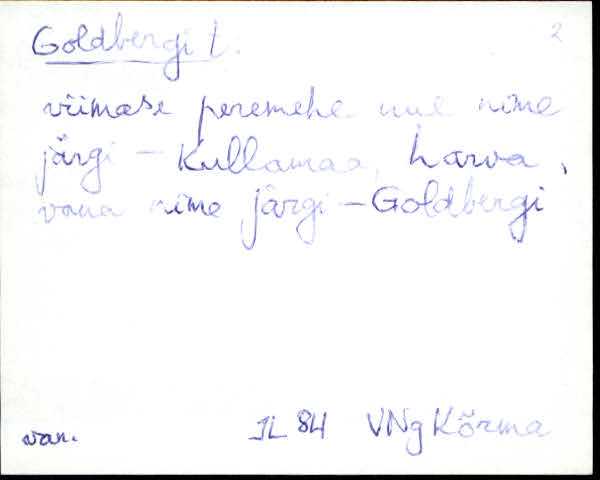 Goldbergi t. 2
viimase peremehe uue nime
järgi - Kullamaa, harva,
vana nime järgi - Goldbergi
van. JL 84 VNg Kõrma